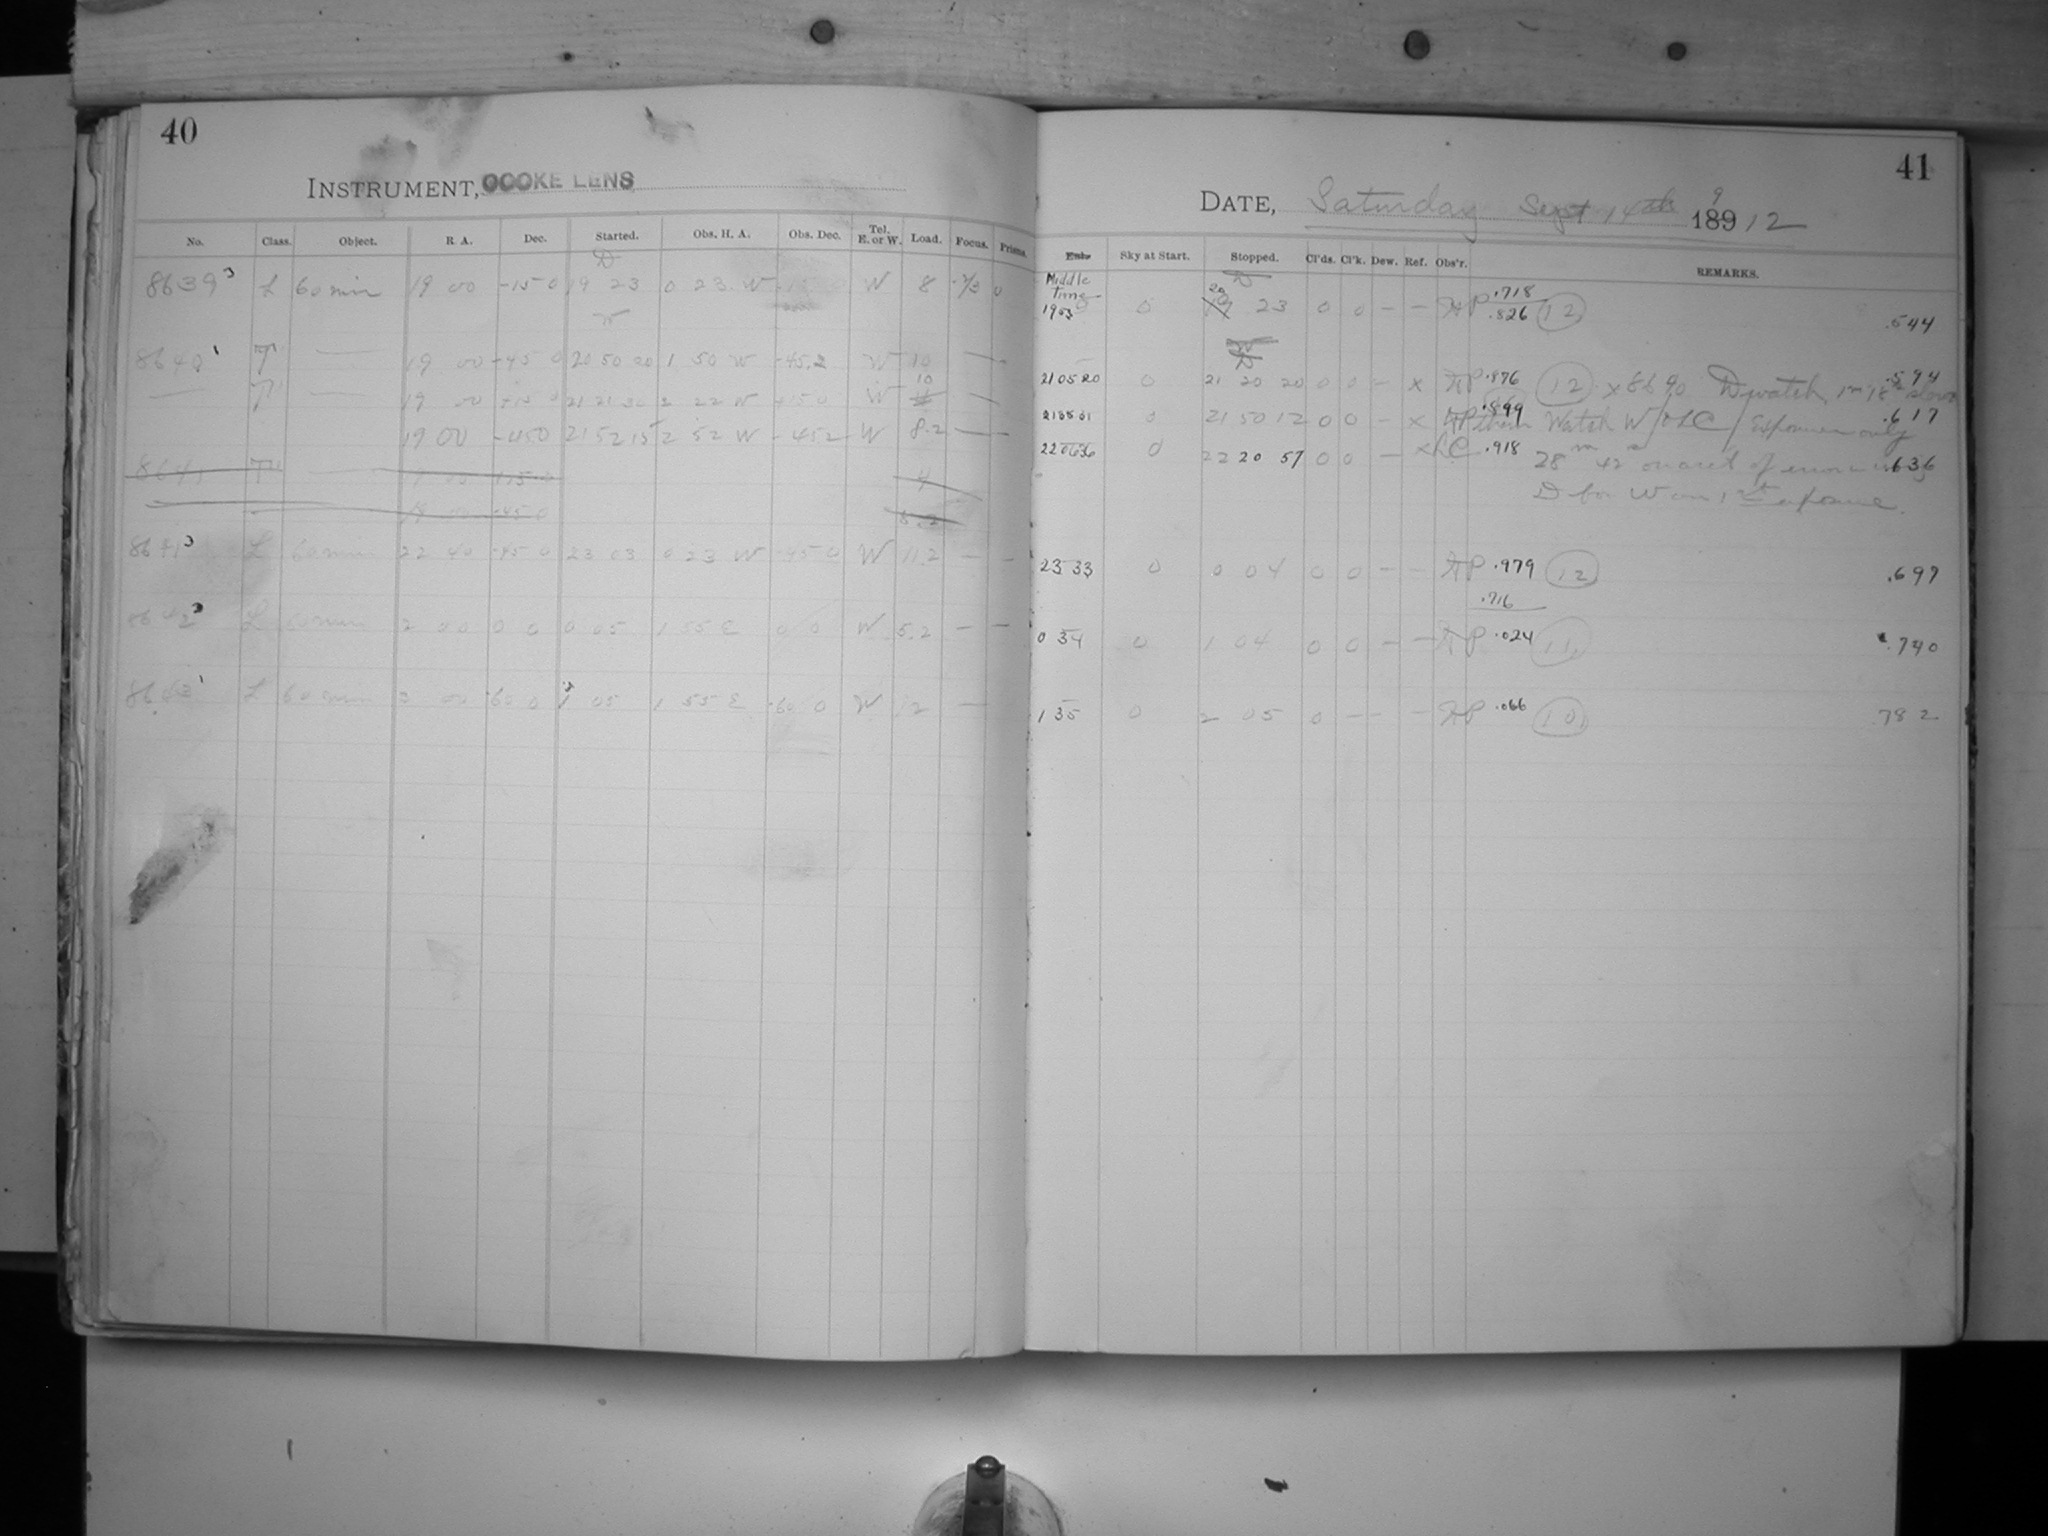 40
INSTRUMENT, COOKE LENS
No. Class. Object. R. A. Dec. Started. Obs. H. A. Obs. Dec. Tel. E. or W. Load. Focus. Prisms.
D
8639 3 L 60 min 19 00 -15 0 19 23 0 23 W W 8 0
W
8640 1 T — 19 00 -45 0 20 50 20 1 50 W -45.2 W 10 —
— T — 19 00 21 21 2 22 W W 10 —
19 00 -45 0 21 52 15 2 52 W -45 2 W 8.2 — —
8641 T 4
8641 3 L 60 min 22 40 -45 0 23 03 0 23 W -45 0 W 11.2 — —
8642 3 L 60 min 2 00 0 0 0 05 1 55 E 0 0 W 5.2 — —
8643 1 L 60 min 3 00 -60 0 1 05 1 55 E -60 0 W 12 —
41
DATE, Saturday Sept 14th 1912
Sky at Start. Stopped. Cl'ds. Cl'k. Dew. Ref. Obs'r. REMARKS.
Middle Time D
1953 0 20 23 0 0 — — .718 .826 12 .544
W D
21 05 20 0 21 20 20 0 0 — x .876 12 x 8640 D watch 1m 18s slow .594
0 21 50 12 0 0 — x .899 Watch W LC Exposures only .617
0 22 20 57 0 0 — x LC .918 28m 42s on acct of error in using .636
D for W on 1st exposure.
23 33 0 0 04 0 0 — — .979 12 .697
.716
0 34 0 1 04 0 0 — — .024 11 .740
1 35 0 2 05 0 — — — .066 10 .782